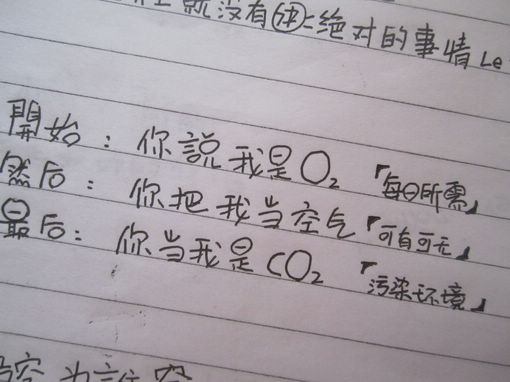 就没有=绝对的事情 Le
開始：你說我是O₂「每日所需」
然后：你把我当空气「可有可无」
最后：你当我是CO₂「污染环境」